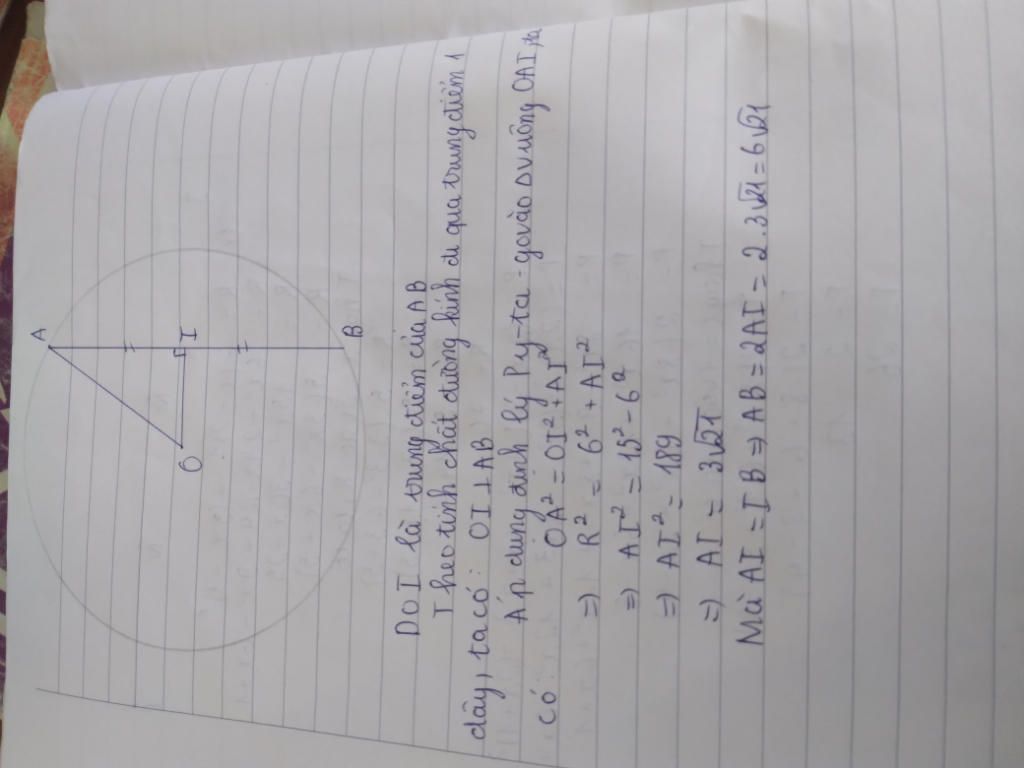 A
O
I
B
Do I là trung điểm của AB
Theo tính chất đường kính đi qua trung điểm 1
dây, ta có: OI ⊥ AB
Áp dụng định lý Py-ta-go vào Δ vuông OAI, ta
có: OA² = OI² + AI²
=) R² = 6² + AI²
=) AI² = 15² - 6²
=) AI² = 189
=) AI = 3√21
Mà AI = IB => AB = 2AI = 2.3√21 = 6√21